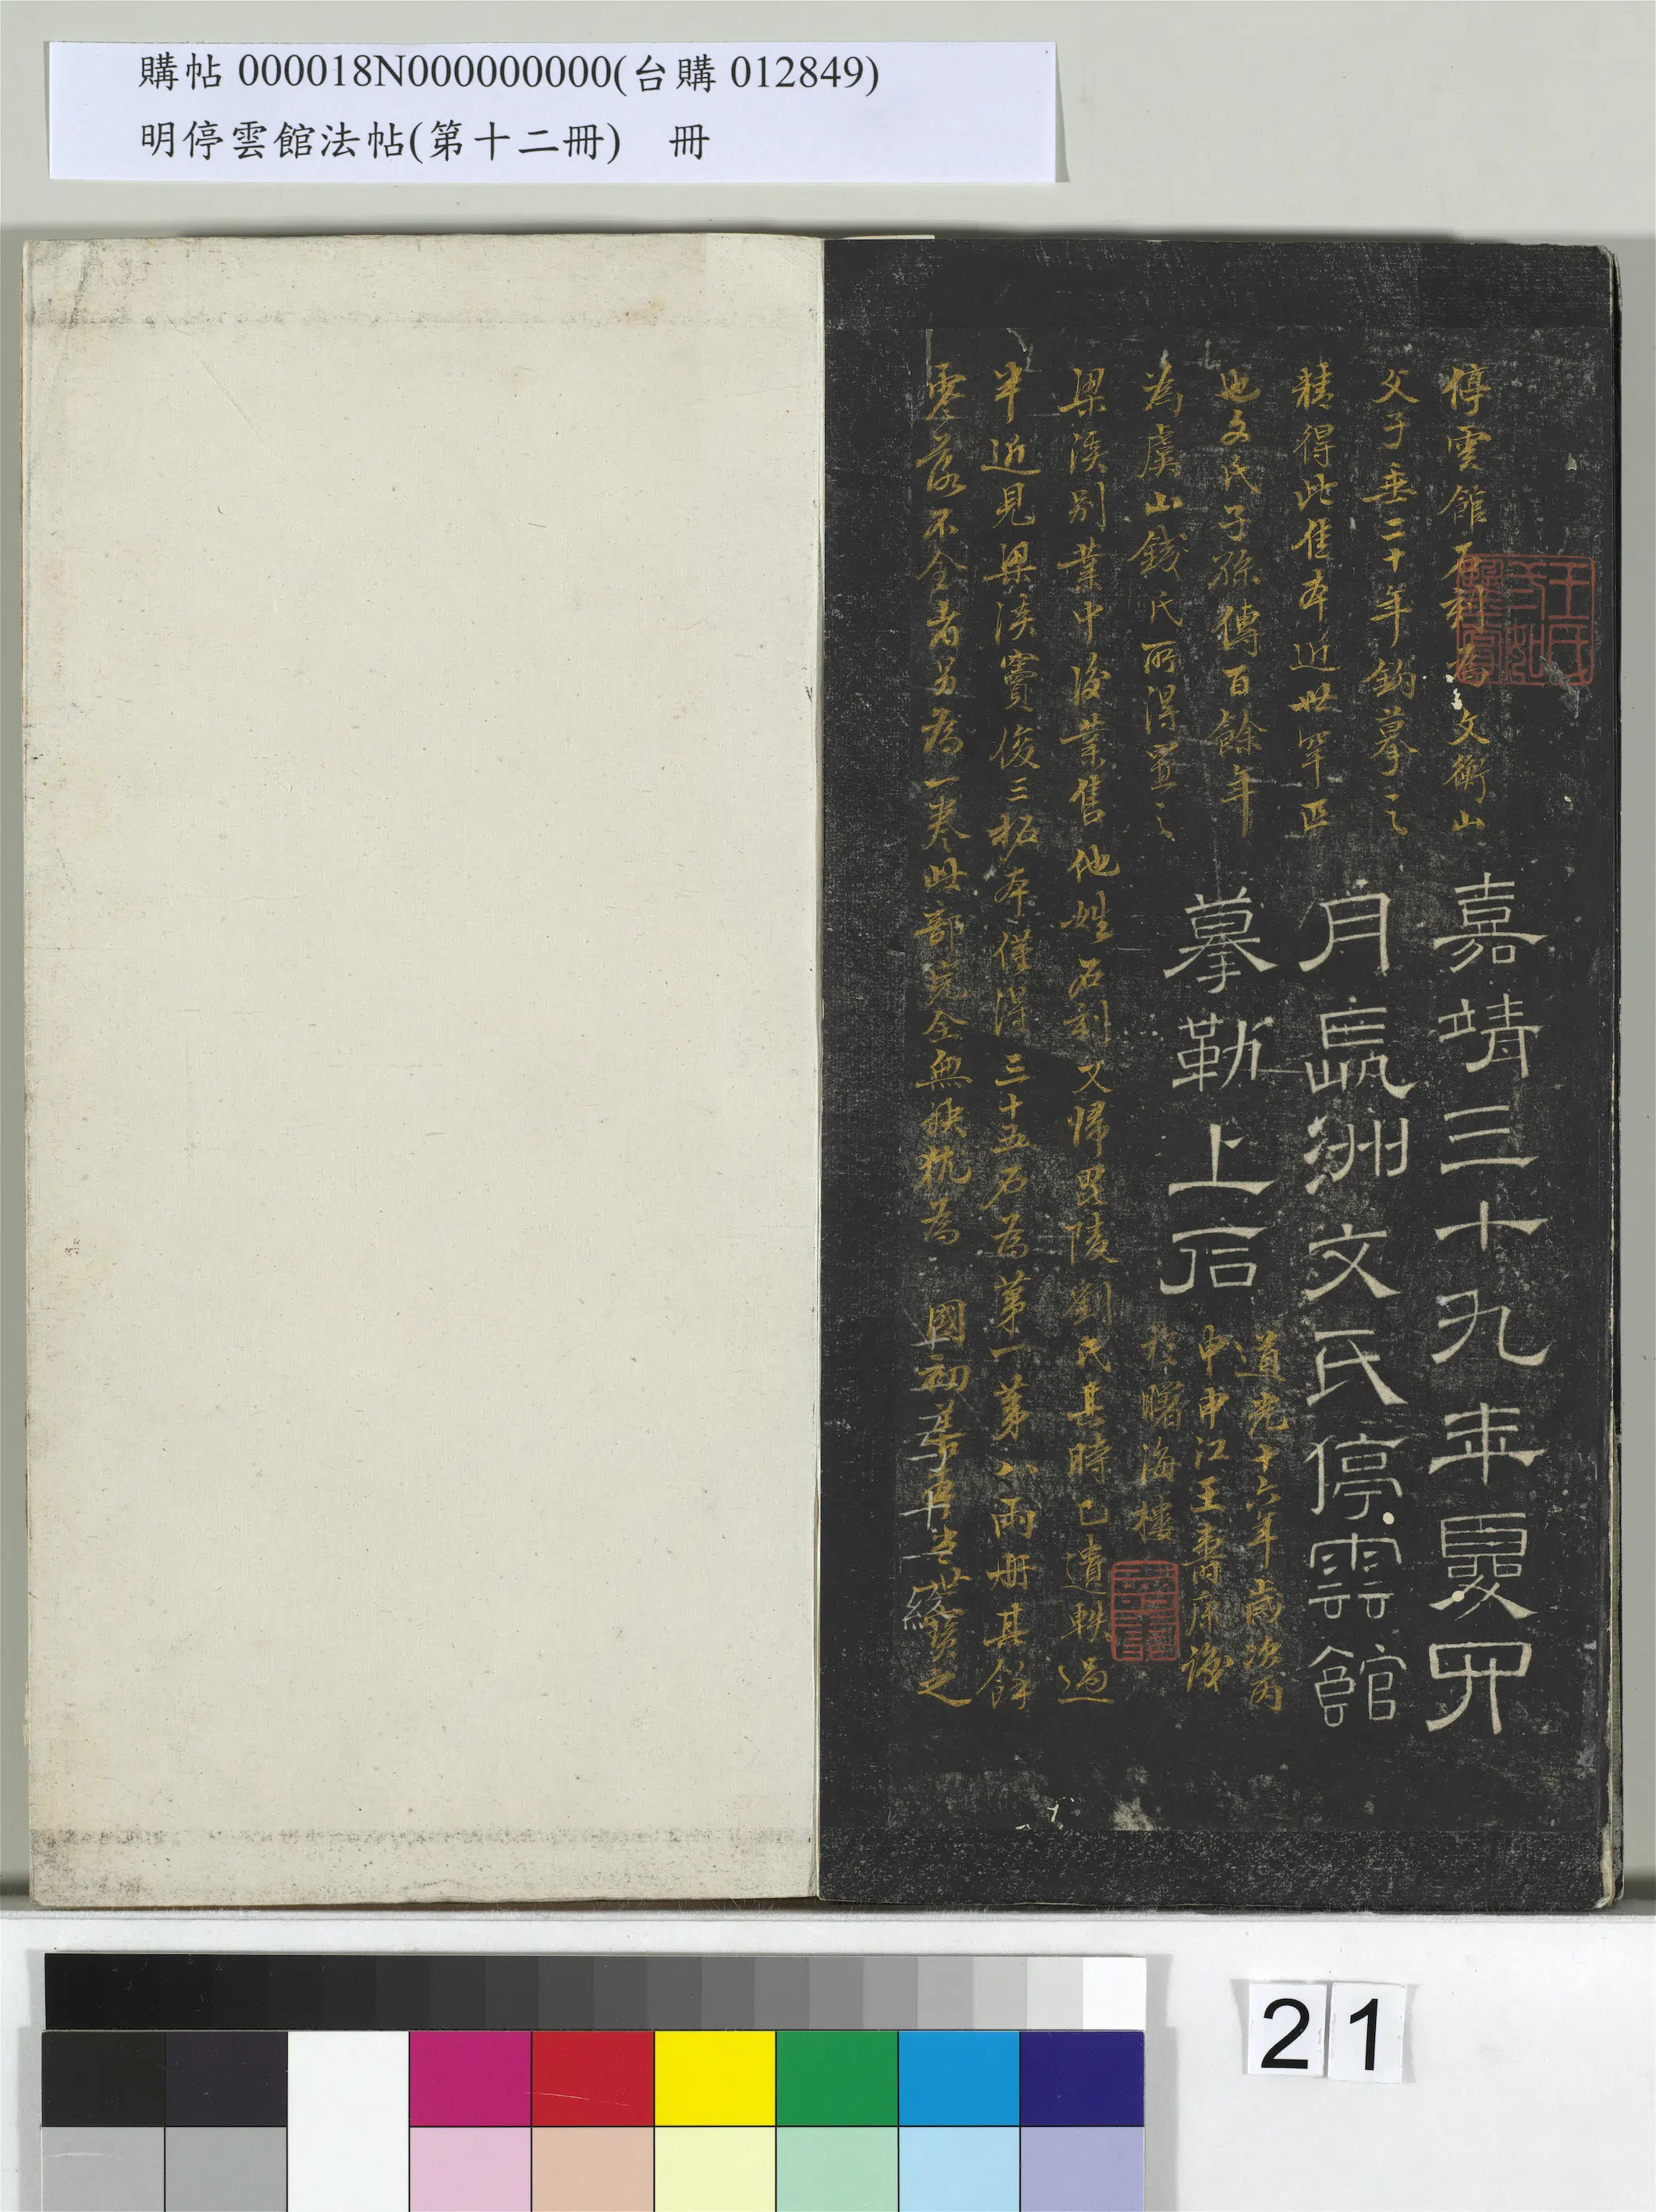 購帖 000018N000000000(台購 012849)
明停雲館法帖(第十二冊) 冊
嘉靖三十九年夏四
月長洲文氏停雲館
摹勒上石
停雲館石刻為文衡山
父子垂二十年鈎摹之
精得此佳本近世罕匹
也文氏子孫傳百餘年
為虞山錢氏所得置之
梁溪別業中後業售他姓石刻又歸毘陵劉氏其時已遺軼過
半近見梁溪竇俊三拓本僅得三十五石為第一第八兩冊其餘
零落不全者另為一卷此部完全無缺犹為 國初拓本世珍之
道光十六年歲次丙
申申江王壽康識
於曙海樓
王氏
21